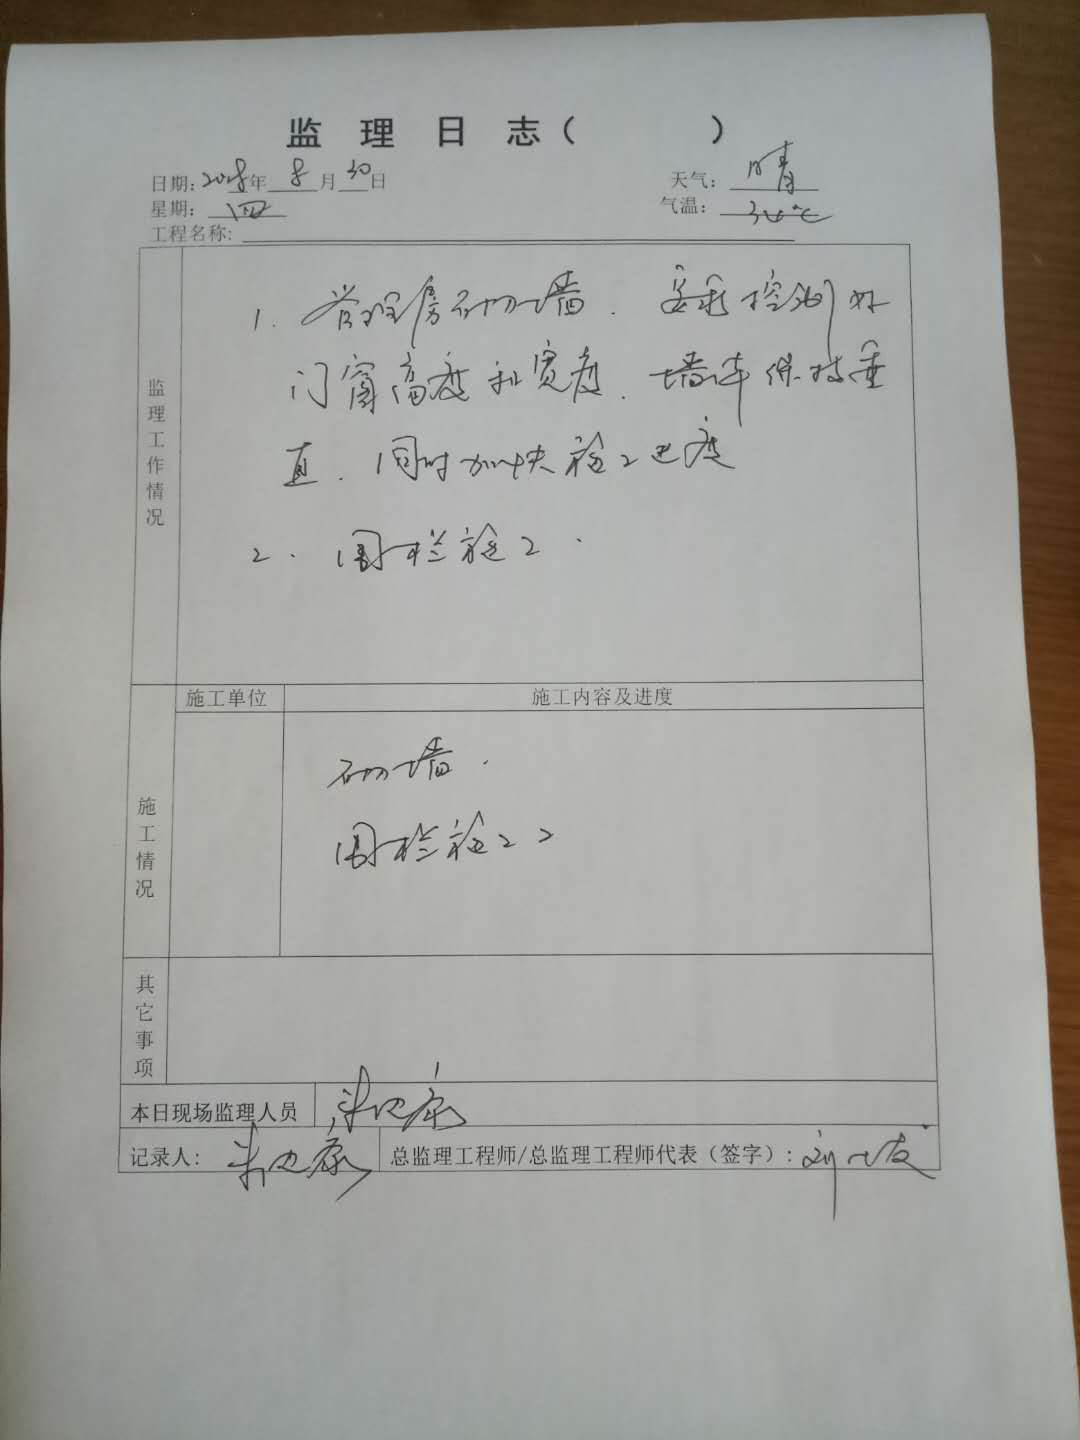 监 理 日 志 (      )
日期: 2018年 8 月 30 日 天气: 晴
星期: 四 气温: 34℃
工程名称:
监理工作情况
1. 管理房砌墙. 要求控制好
门窗高度和宽度. 墙体保持垂
直. 同时加快施工进度
2. 围栏施工.
施工单位 施工内容及进度
施工情况
砌墙.
围栏施工
其它事项
本日现场监理人员
记录人: 总监理工程师/总监理工程师代表（签字）: 刘